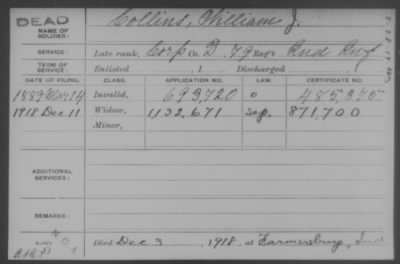 DEAD
NAME OF SOLDIER:
Collins, William J.
SERVICE:
Late rank, Corp Co. D, 79 Reg't Ind Inf
TERM OF SERVICE:
Enlisted , 1 Discharged , 1
DATE OF FILING. CLASS. APPLICATION NO. LAW. CERTIFICATE NO.
1889 Mar 14 Invalid, 693,720 0 485,375
1918 Dec 11 Widow, 1,132,671 871,700
Minor,
ADDITIONAL SERVICES:
REMARKS:
Died Dec 3, 1918, at Farmersburg, Ind